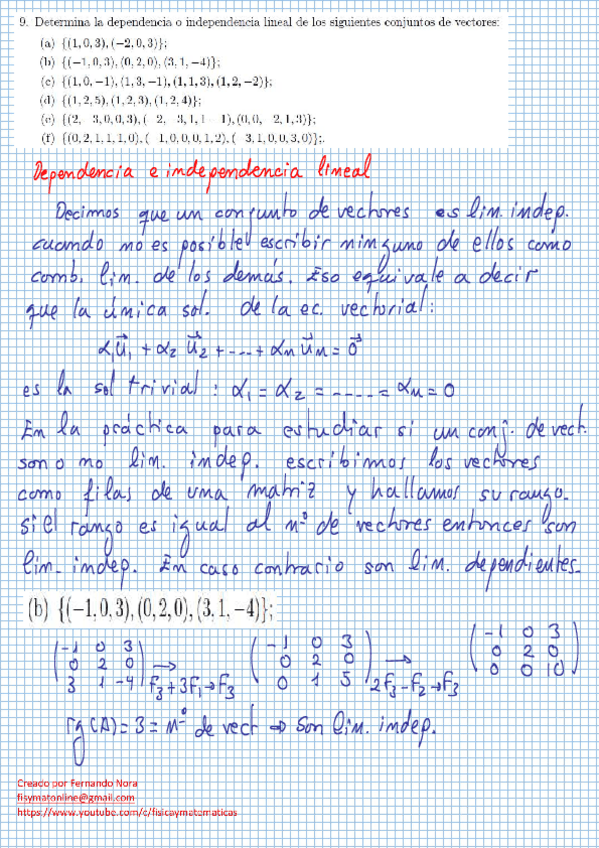 9. Determina la dependencia o independencia lineal de los siguientes conjuntos de vectores:
(a) {(1, 0, 3), (−2, 0, 3)};
(b) {(−1, 0, 3), (0, 2, 0), (3, 1, −4)};
(c) {(1, 0, −1), (1, 3, −1), (1, 1, 3), (1, 2, −2)};
(d) {(1, 2, 5), (1, 2, 3), (1, 2, 4)};
(e) {(2, 3, 0, 0, 3), ( 2, 3, 1, 1 1), (0, 0, 2, 1, 3)};
(f) {(0, 2, 1, 1, 1, 0), ( 1, 0, 0, 0, 1, 2), ( 3, 1, 0, 0, 3, 0)};.
Dependencia e independencia lineal
Decimos que un conjunto de vectores es lin. indep.
cuando no es posible escribir ninguno de ellos como
comb. lin. de los demás. Eso equivale a decir
que la única sol. de la ec. vectorial:
α₁u⃗₁ + α₂ u⃗₂ + ---- + αₙ u⃗ₙ = 0⃗
es la sol trivial : α₁ = α₂ = ----- = αₙ = 0
En la práctica para estudiar si un conj. de vect.
son o no lin. indep. escribimos los vectores
como filas de una matriz y hallamos su rango.
si el rango es igual al nº de vectores entonces son
lin. indep. En caso contrario son lin. dependientes.
(b) {(−1, 0, 3), (0, 2, 0), (3, 1, −4)};
(-1 0 3; 0 2 0; 3 1 -4) → F₃+3F₁→F₃ (-1 0 3; 0 2 0; 0 1 5) → 2F₃-F₂→F₃ (-1 0 3; 0 2 0; 0 0 10)
rg(A)=3= nº de vect ⇒ Son lin. indep.
Creado por Fernando Nora
fisymatonline@gmail.com
https://www.youtube.com/c/fisicaymatematicas